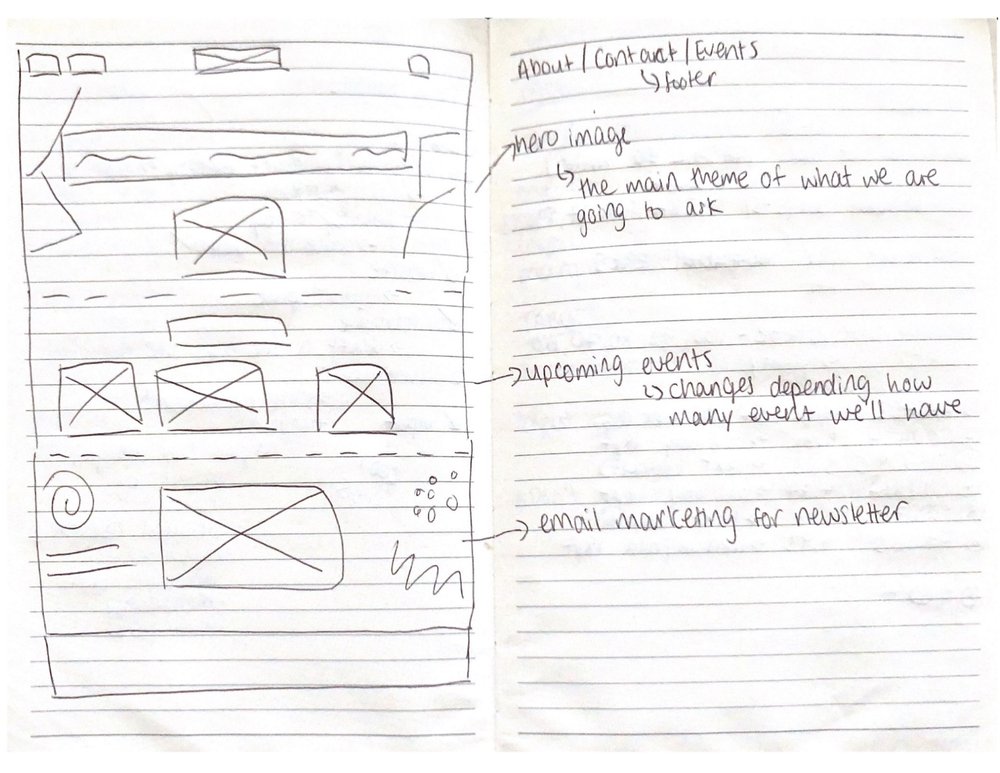 About / Contact / Events
↳ footer
hero image
↳ the main theme of what we are
going to ask
upcoming events
↳ changes depending how
many event we'll have
email marketing for newsletter